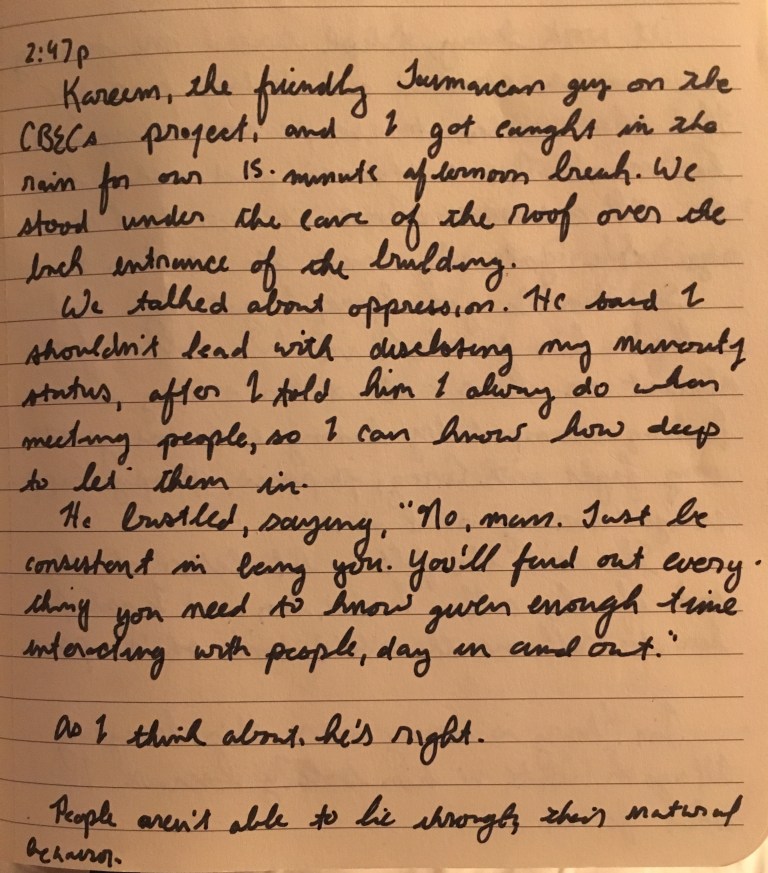 2:47p
Kareem, the friendly Jamaican guy on the
CBECs project, and I got caught in the
rain for our 15-minute afternoon break. We
stood under the eave of the roof over the
back entrance of the building.
We talked about oppression. He said I
shouldn't lead with disclosing my minority
status, after I told him I always do when
meeting people, so I can know how deep
to let them in.
He bustled, saying, "No, man. Just be
consistent in being you. You'll find out every-
thing you need to know given enough time
interacting with people, day in and out."
As I think about, he's right.
People aren't able to lie through their natural
behavior.